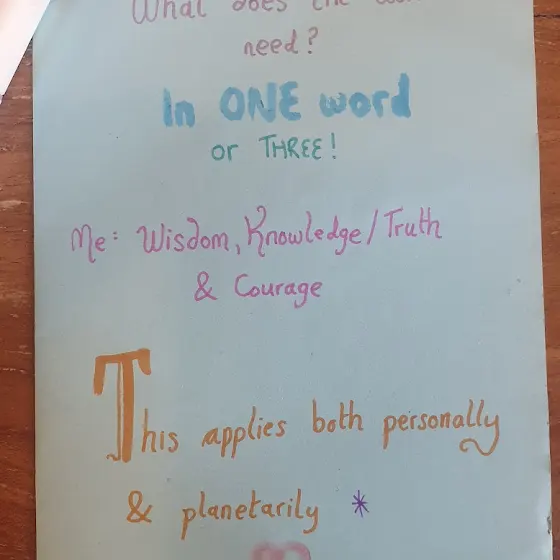 What does the
need?
In ONE word
or THREE!
Me: Wisdom, Knowledge/Truth
& Courage
This applies both personally
& planetarily *